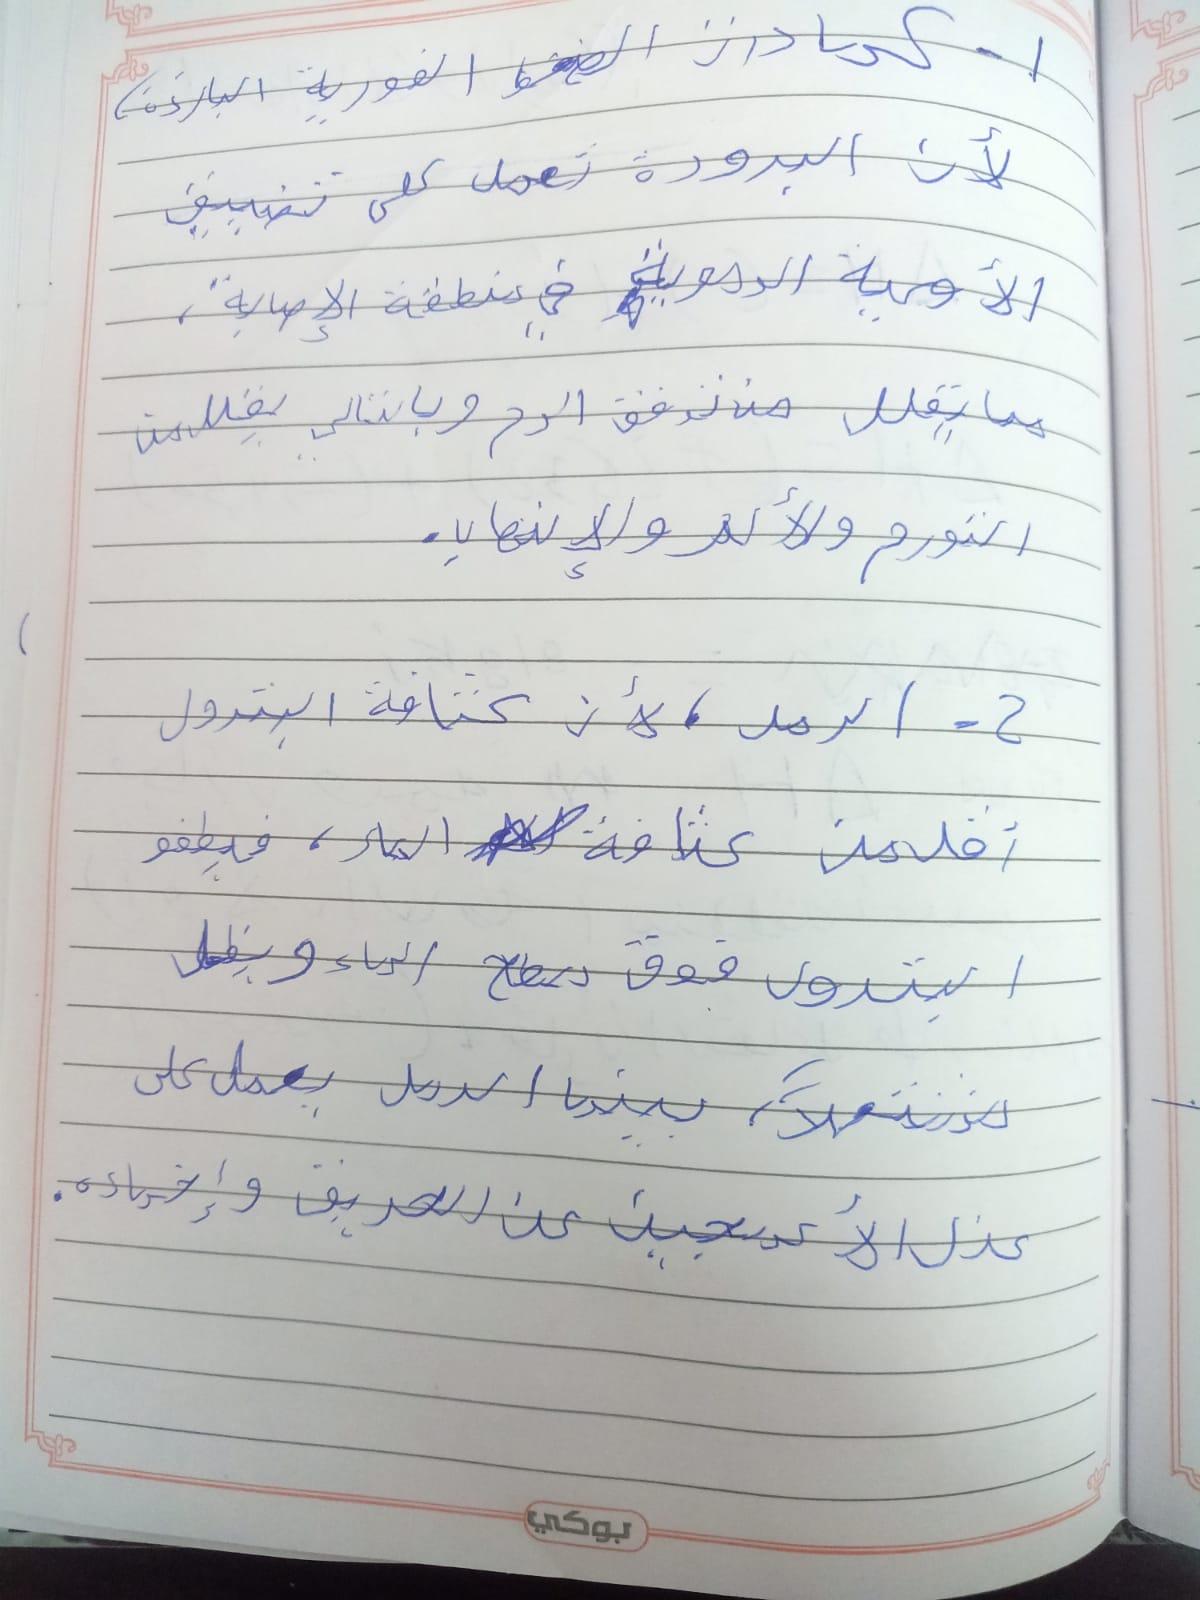 1- كمادات الضغط الفورية الباردة،
لأن البرودة تعمل على تضييق
الأوعية الدموية في منطقة الإصابة،
مما يقلل من تدفق الدم وبالتالي يقلل من
التورم والألم والإلتهاب.
2- الرمل، لأن كثافة البترول
أقل من كثافة الماء، فيطفو
البترول فوق سطح الماء ويظل
مشتعلاً، بينما الرمل يعمل على
عزل الأكسجين عن الحريق وإخماده.
بوكي